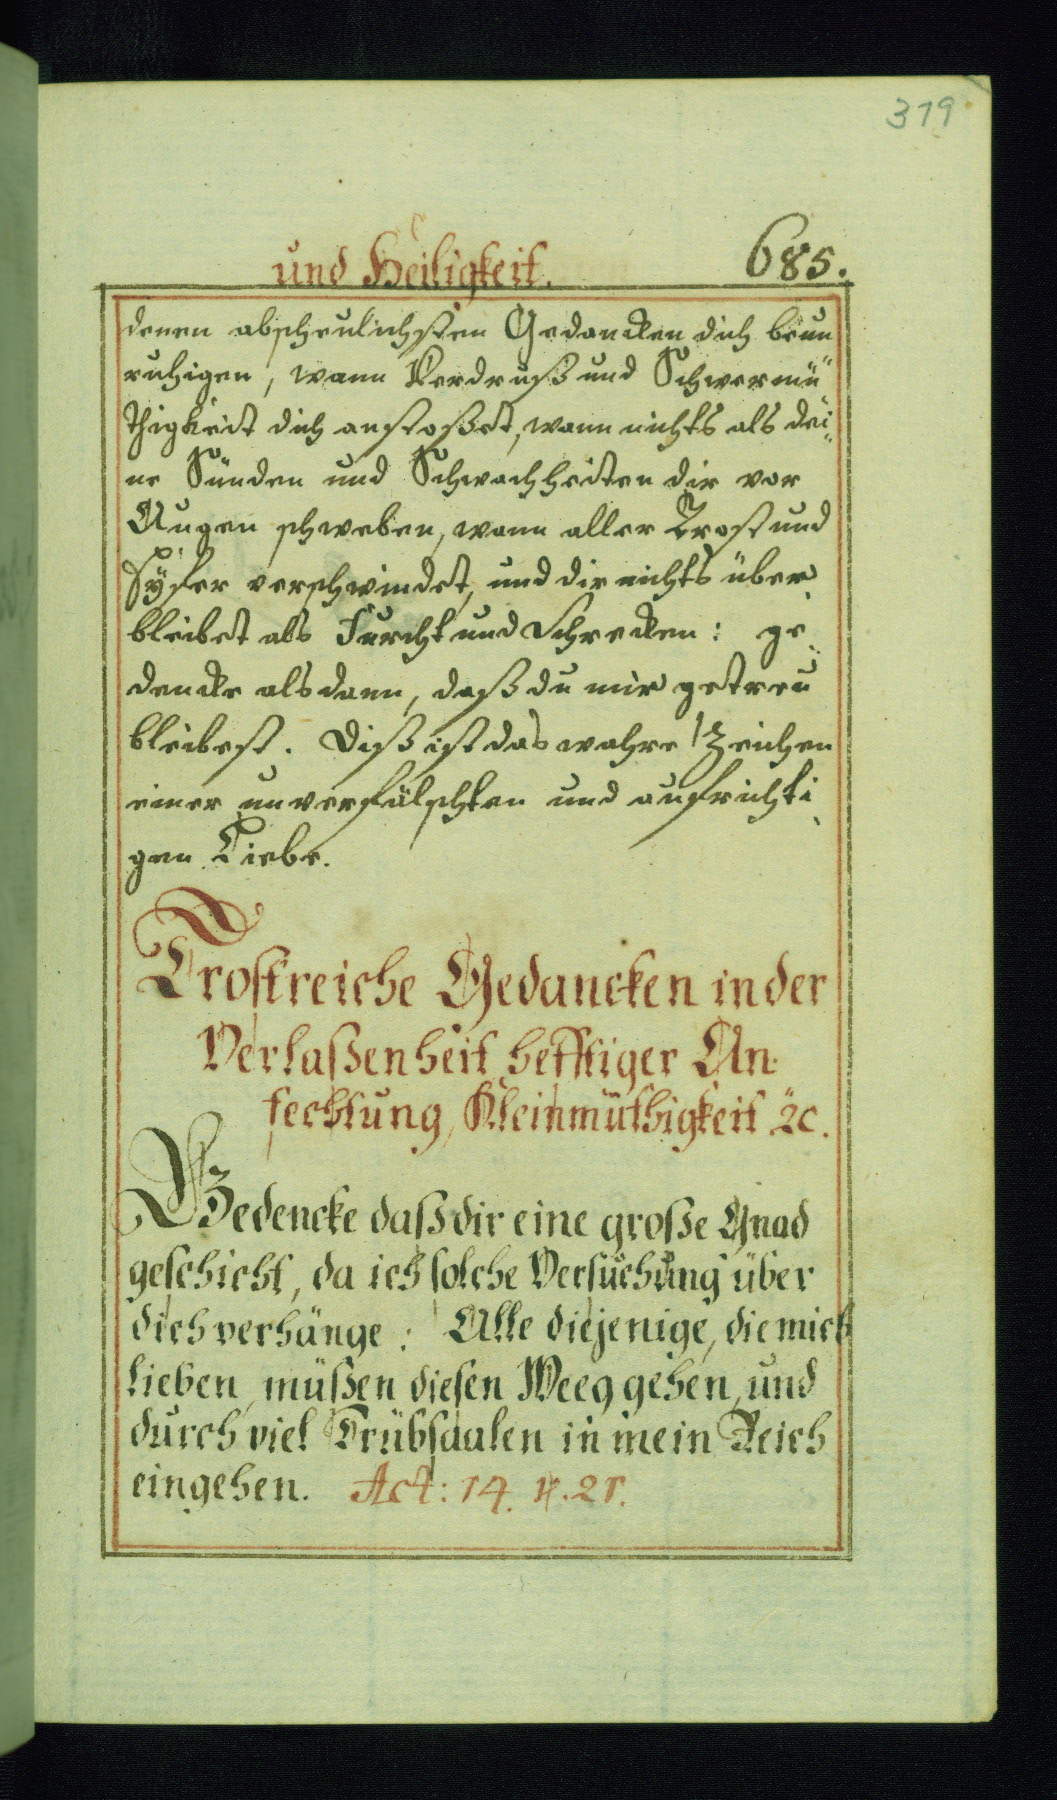 319
und Heiligkeit. 685.
denen abscheulichsten Gedancken dich beun
ruhigen, wann Verdruß und Schwermü
thigkeit dich anstosset, wann nichts als dei
ne Sünden und Schwachheiten dir vor
Augen schweben, wann aller Trost und
Eÿfer verschwindet, und dir nichts über
bleibet als Furcht und Schrecken: ge
dencke alsdann, daß du mir getreu
bleibest. Diß ist das wahre Zeichen
einer unverfälschten und aufrichti
gen Liebe.
Trostreiche Gedancken in der
Verlaßenheit hefftiger An
fechtung, Kleinmüthigkeit ꝛc.
Gedencke daß dir eine große Gnad
geschicht, da ich solche Versuchung über
dich verhänge: Alle diejenige, die mich
lieben, müßen diesen Weeg gehen, und
durch viel Trübsaalen in mein Reich
eingehen. Act: 14. ℣. 21.